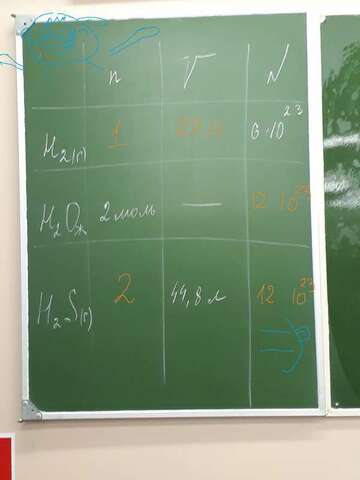 n V N
H₂(г) 1 22,4 6·10²³
H₂Oж 2 моль — 12 10²³
H₂S(г) 2 44,8 л 12 10²³